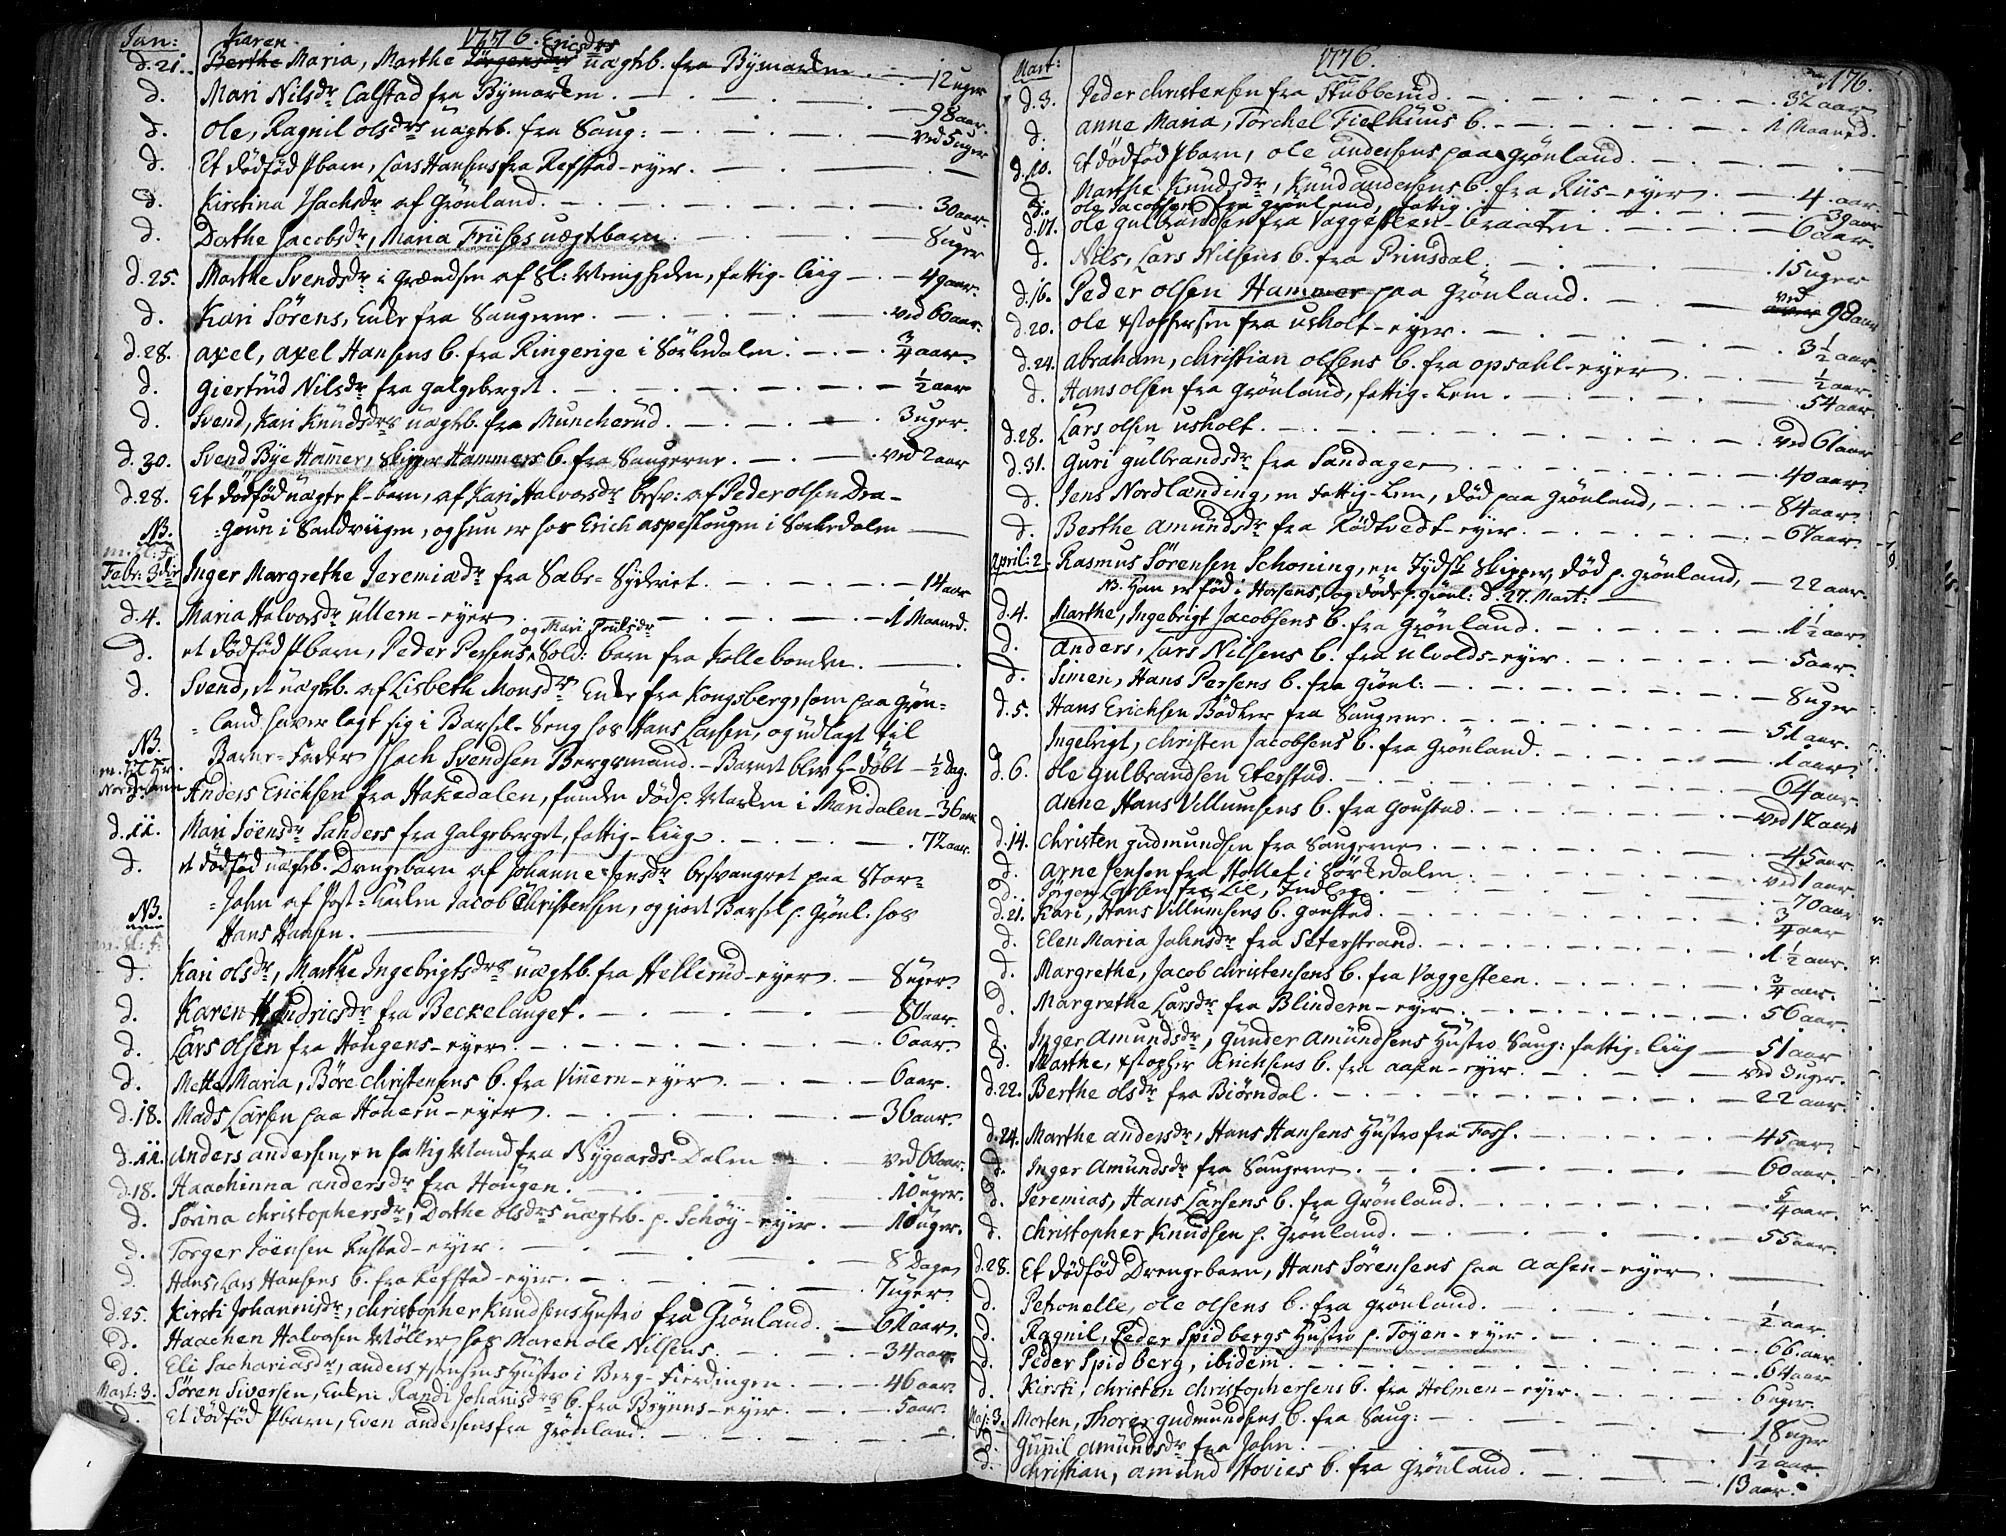 Jan: 1776.
d. 21. Karen Berthe Maria, Marthe Jörgensdr Ericsdrs uægtb. fra Bymarken. — 12 uger
d. Mari Nilsdr Calstad fra Bymarken. — 98 aar.
d. Ole, Ragnil olsdrs uægtb. fra Saug: — ved 5 uger
d. Et dödföd Pbarn, Lars Hansens fra Refstad-eyer. —
d. Kirstina Isachsdr af Grönland. — 30 aar.
d. Dorthe Jacobsdr, Maria Friises uægtebarn. — 8 uger
d. 25. Marthe Svendsdr i Grændsen af Sl: Menigheden, fattig-liig — 49 aar.
d. Kari Sörens, Enke fra Saugerne. — ved 60 aar.
d. 28. Axel, Axel Hansens b. fra Ringerige i Sörkedalen. — 3/4 aar.
d. Giertrud Nilsdr fra Galgeberget. — 1/2 aar
d. Svend, Kari Knudsdrs uægtb. fra Muncherud. — 3 uger.
d. 30. Svend Bye Hamer, Skipper Hammers b. fra Saugerne. — ved 2 aar
d. 28. Et dödföd uægte P-barn, af Kari Halvorsdr besv: af Peder olsen Dra-
NB. =goun i Sandviigen, og hun er hos Erich aspeslougen i Sörkedalen —
m. Sl: F:
Febr: 3die Inger Margrethe Jeremiædr fra Sæbe-Syderiet. — 14 aar
d. 4. Maria Halvorsdr Ullern-eyer. — 1 Maaned.
og Mari Poulsdr
d. et dödföd Pbarn, Peder Persens, Sold: barn fra Kollebonden. —
d. Svend, et uægtb. af Lisbeth Monsdr Enke fra Kongsberg, som paa Grön-
=land haver lagt sig i Barsel-Seng hos Hans Larsen, og udlagt til
NB. Barne-Fader Isach Svendsen Bergsmand. — Barnet blev H-döbt — 1/2 Dag.
d. Anders Erichsen fra Hakedalen, funden död p. Marken i Maridalen — 36 aar
d. 11. Mari Joensdr Sanders fra Galgeberget, fattig-liig — 72 aar.
d. et dödföd uægteb. Drengebarn af Johanne Jensdr besvangret paa Stor-
NB. =John af Post-Karlen Jacob Christensen, og giort Barsel p. Grönl. hos
m. Sl: F. Hans Hansen. —
d. Kari olsdr, Marthe Ingebrigtsdrs uægtb. fra Hellerud-eyer. — 8 uger
d. Karen Hendricsdr fra Beckelauget. — 80 aar.
d. Lars olsen fra Hougens-eyer. — 6 aar.
d. Mette Maria, Böre Christensens b. fra Vinnern-eyer. — 6 aar.
d. 18. Mads Larsen paa Houern-eyer. — 36 aar.
d. 11. Anders andersen, en fattig Mand fra Nygaards-Dalen — ved 60 aar.
d. 18. Haachinna andersdr fra Hougen. — 10 uger.
d. Sörina christophersdr, Dorthe olsdrs uægtb. p. Schöy-eyer. — 10 uger.
d. Torger Joensen Rustad-eyer. — 8 Dage
d. Hans, Lars Hansens b. fra Refstad-eyer. — 7 uger.
d. 25. Kirsti Johannisdr, christopher Knudsens Hustro fra Grönland. — 61 aar.
d. Haachen Halvorsen Möller hos Maren ole Nilsens. — 34 aar.
d. Eli Sachariasdr, anders xstensens Hustro i Berg-Fierdingen — 46 aar.
Mart: 3. Sören Siversen, Enken Randi Johanisdrs b. fra Brynns-eyer. — 5 aar.
d. Et dödföd Pbarn, Even andersens fra Grönland. —
Mart: 1776. 176.
d. 3. Peder christensen fra Stubberud. — 32 aar
d. Anne Maria, Torchel Fielhuus b. — 1 Maaned.
d. 10. Et dödföd Pbarn, ole andersens paa Grönland. —
d. Marthe Knudsdr, Knud andersens b. fra Riis-eyer. — 4 aar
d. ole Jacobsen fra Grönland, fattig. — 39 aar
d. 17. ole gulbrandsen fra Vaggesteen-braaten. — 6 aar.
d. Nils, Lars Nilsens b. fra Prinsdal. — 15 uger
d. 16. Peder olsen Hammer paa Grönland. — ved 90 aar
d. 20. ole xstoffersen fra usholt-eyer. — 3 1/2 aar.
d. 24. abraham, christian olsens b. fra opsahl-eyer. — 1/2 aar.
d. Hans olsen fra Grönland, fattig-Lem. — 54 aar.
d. 28. Lars olsen usholt. — ved 61 aar
d. 31. Guri gulbrandsdr fra Sandager. — 40 aar.
d. Jens Nordlænding, en fattig-Lem, död paa Grönland, — 84 aar.
d. Berthe amundsdr fra Rödtvedt-eyer. — 67 aar.
april: 2. Rasmus Sörensen Schoning, en Jydsk Skipper, död p. Grönland, — 22 aar.
NB. Han er föd i Horsens, og döde p. Grönl: d. 27. Mart: —
d. 4. Marthe, Ingebrigt Jacobsens b. fra Grönland. — 1 1/2 aar
d. Anders, Lars Nilsens b. fra Ulvolds-eyer. — 5 aar.
d. Simen, Hans Persens b. fra Grönl: — 8 uger
d. 5. Hans Erichsen Bödker fra Saugerne. — 51 aar.
Ingebrigt, christen Jacobsens b. fra Grönland. — 1 aar.
d. 6. ole Gulbrandsen Eterstad. — 64 aar.
Anne Hans Villumsens b. fra Goustad. — ved 12 aar
d. 14. Christen gudmundsen fra Saugerne. — 45 aar.
d. Arne Jensen fra Hollet i Sörkedalen. — ved 1 aar.
d. Jörgen Larsen fra Lie, Indleg. — 70 aar
d. 21. Kari, Hans Villumsens b. goustad. — 3/4 aar
d. Elen Maria Johnsdr fra Seterstrand. — 1 1/2 aar.
d. Margrethe, Jacob christensens b. fra Vaggesteen. — 3/4 aar.
d. Margrethe Larsdr fra Blindern-eyer. — 56 aar.
d. Inger Amundsdr, Gunder Amundsens Hustro Saug: fattig-liig — 51 aar
d. Marthe, xstopher Erichsens b. fra aasen-eyer. — ved 3 uger.
d. 22. Berthe olsdr fra Biörndal. — 22 aar.
d. 24. Marthe andersdr, Hans Hansens Hustro fra Foss. — 45 aar.
d. Inger Amundsdr fra Saugerne. — 60 aar.
d. Jeremias, Hans Larsens b. fra Grönland. — 5/4 aar.
d. Christopher Knudsen p. Grönland. — 55 aar.
d. 28. Et dödföd Drengebarn, Hans Sörensens paa aasen-eyer. —
d. Petronelle, ole olsens b. fra Grönland. — 1/2 aar.
d. Ragnil, Peder Spidbergs Hustro p. Töyen-eyer. — 66 aar.
d. Peder Spidberg, ibidem. — 64 aar
d. Kirsti, christen christophersens b. fra Holmen-eyer. — 6 uger.
Maj: 3. Morten, Thorer gudmundsens b. fra Saug: — 18 uger
d. Gunnil amundsdr fra John. — 1 1/2 aar
d. Christian, amund Hovies b. fra Grönland. — 13 aar.